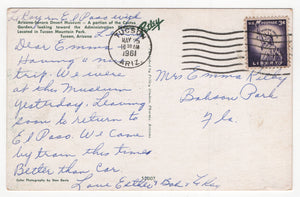 Arizona-Sonora Desert Museum — A portion of the Cactus
Garden, looking toward the Administration
Located in Tucson Mountain Park.
Tucson, Arizona
TUCSON
MAY 25
1961
ARIZ.
3¢
LIBERTY
Dear Emma,
Having "nice"
trip. We were
at this Museum
Yesterday. Leaving
soon to return to
El Paso. We came
by train this time
Better than car.
Love Esther Bob &
Mrs Emma
Babson Park
Fla.
Color Photography by